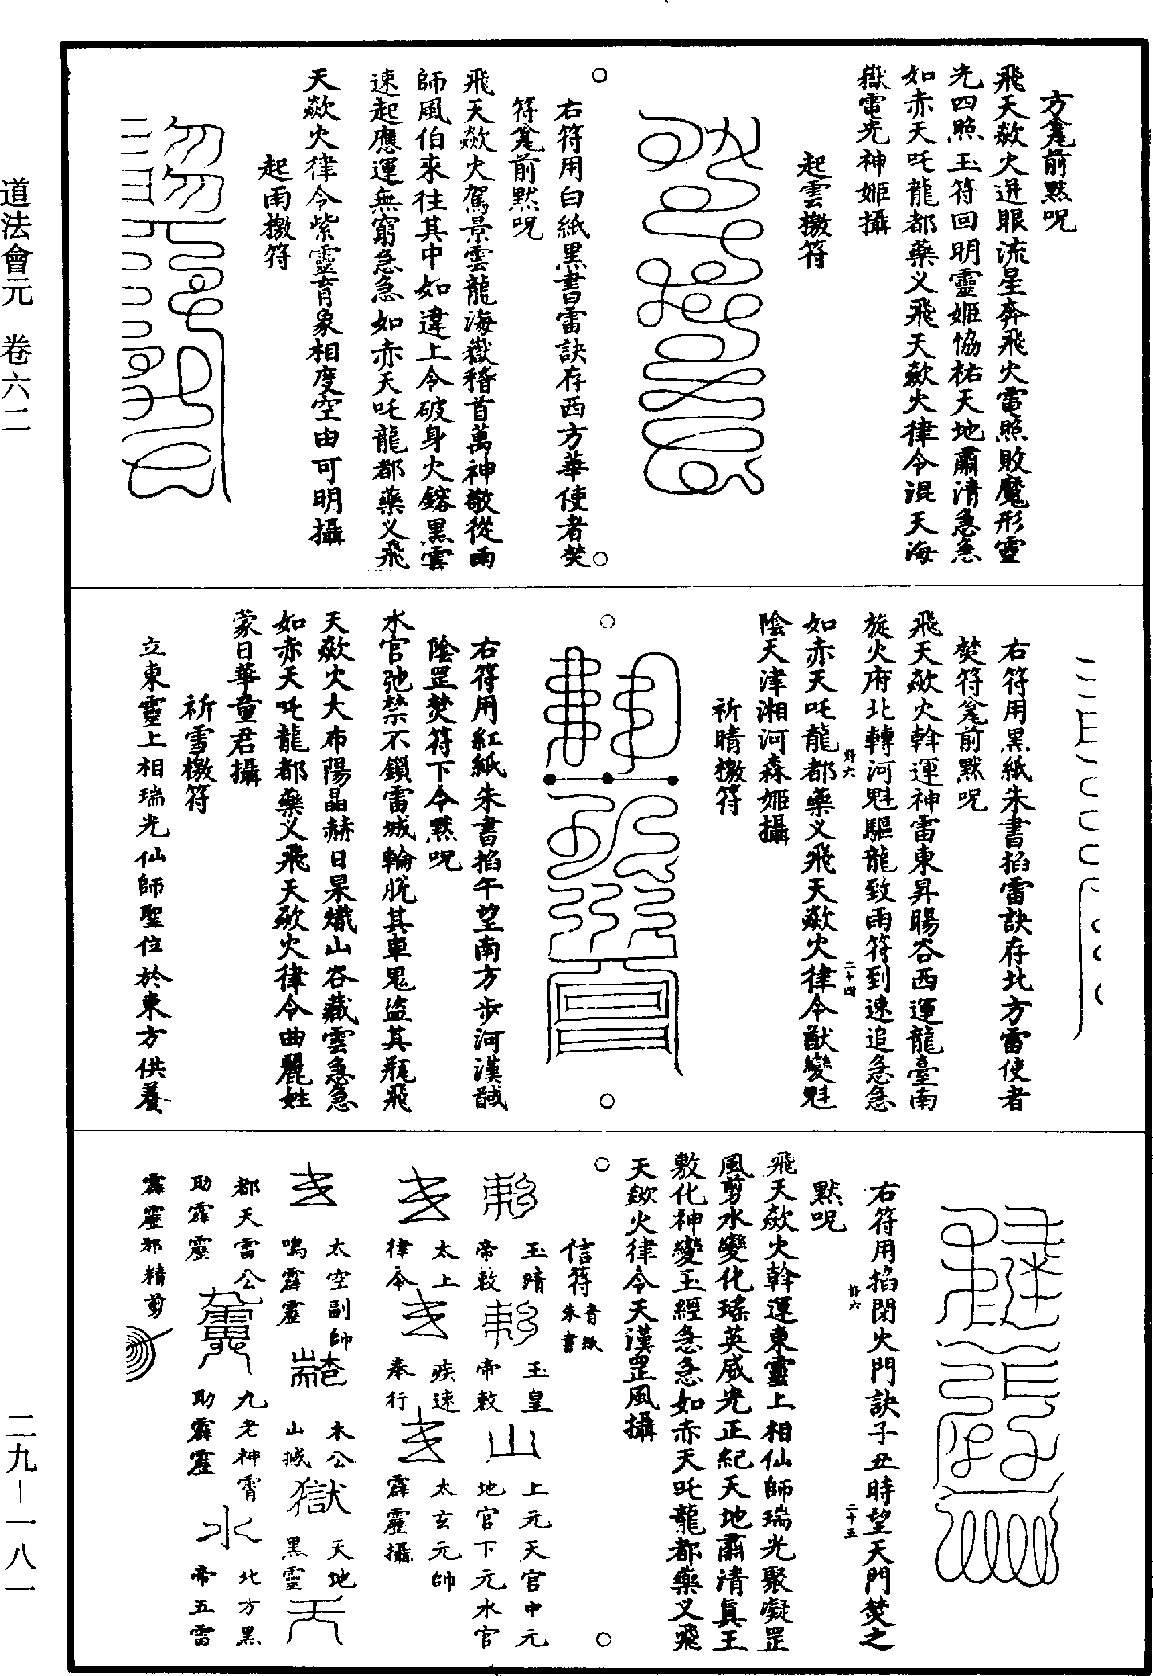 方窟前黙呪
飛天歘火迸眼流星奔飛火雷照敗魔形靈
光四照玉符回明靈姬協祐天地肅清急急
如赤天吒龍都藥义飛天歘火律令混天海
嶽電光神姬攝
起雲檄符
右符用白紙黑書雷訣存西方華使者焚
符窟前黙呪
飛天歘火駕景雲龍海嶽稽首萬神敬從雨
師風伯來往其中如違上令破身火鎔黑雲
速起應運無窮急急如赤天吒龍都藥义飛
天歘火律令紫靈育象相度空由可明攝
起雨檄符
右符用黑紙朱書掐雷訣存北方雷使者
焚符窟前黙呪
飛天歘火斡運神雷東昇暘谷西運龍臺南
旋火府北轉河魁驅龍致雨符到速追急急
如赤天吒龍都藥义飛天歘火律令猷變魁
陰天津湘河森姬攝
二十四
祈晴檄符
右符用紅紙朱書掐午望南方步河漢馘
陰罡焚符下令黙呪
水官弛禁不鎖雷城輪脫其車鬼盜其瓶飛
天歘火大布陽晶赫日杲熾山谷藏雲急急
如赤天吒龍都藥义飛天歘火律令曲麗姓
蒙日華童君攝
祈雪檄符
立東靈上相瑞光仙師聖位於東方供養
右符用掐閉火門訣子丑時望天門焚之
二十五
黙呪
飛天歘火斡運東靈上相仙師瑞光聚凝罡
風剪水變化瑤英威光正紀天地肅清真王
敷化神變玉經急急如赤天吒龍都藥义飛
天歘火律令天漢罡風攝
信符
青紙朱書
玉晴帝敕
玉皇帝敕
上元天官中元地官下元水官
太上律令
疾速奉行
太玄元帥霹靂攝
太空副帥鳴霹靂
木公山摵
獄
天地黑靈
都天雷公助霹靂
九老神霄助霹靂
水
北方黑帝五雷
霹靂邪精剪
道法會元　卷六二
二九—一八一